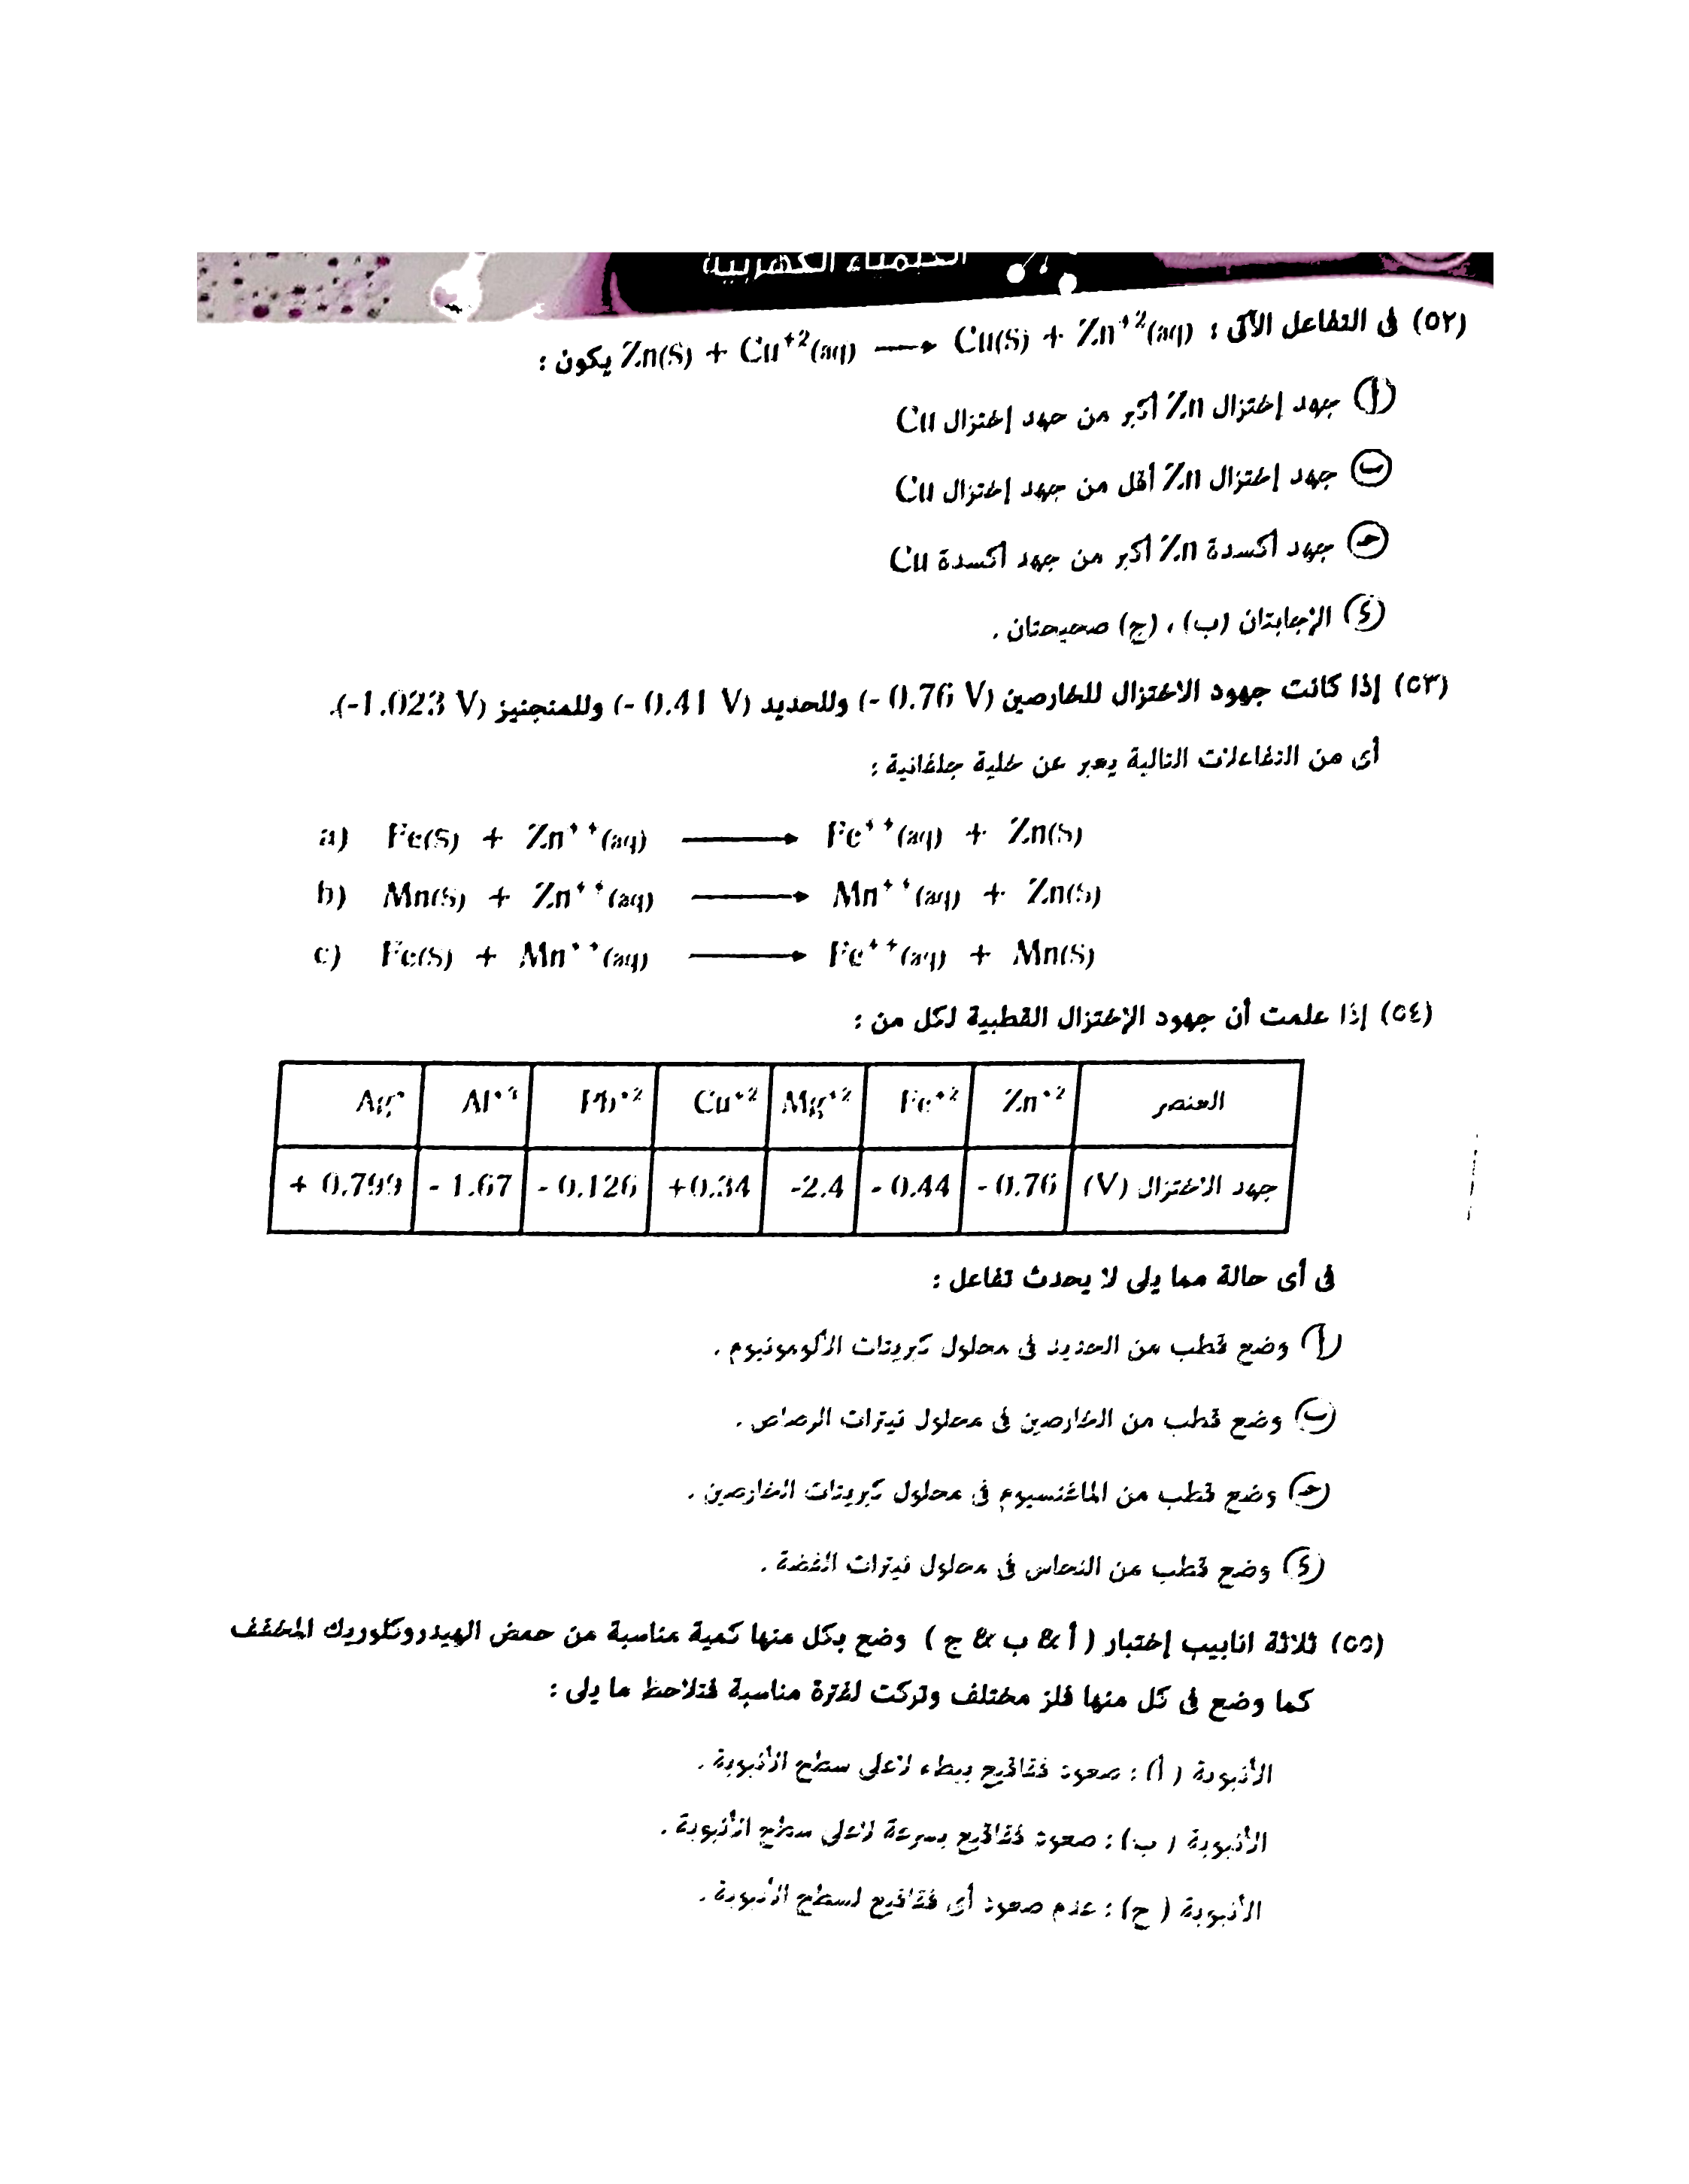 الكيمياء الكهربية
(٥٢) فى التفاعل الآتى : Zn(S) + Cu⁺²(aq) ⟶ Cu(S) + Zn⁺²(aq) يكون :
أ جهد إختزال Zn أكبر من جهد إختزال Cu
ب جهد إختزال Zn أقل من جهد إختزال Cu
ج جهد أكسدة Zn أكبر من جهد أكسدة Cu
د الإجابتان (ب) ، (ج) صحيحتان .
(٥٣) إذا كانت جهود الاختزال للخارصين (- 0.76 V) وللحديد (- 0.41 V) وللمنجنيز (-1.023 V).
أى من التفاعلات التالية يعبر عن خلية جلفانية :
a) Fe(S) + Zn⁺⁺(aq) ⟶ Fe⁺⁺(aq) + Zn(S)
b) Mn(S) + Zn⁺⁺(aq) ⟶ Mn⁺⁺(aq) + Zn(S)
c) Fe(S) + Mn⁺⁺(aq) ⟶ Fe⁺⁺(aq) + Mn(S)
(٥٤) إذا علمت أن جهود الإختزال القطبية لكل من :
العنصر Zn⁺² Fe⁺² Mg⁺² Cu⁺² Pb⁺² Al⁺³ Ag⁺
جهد الاختزال (V) - 0.76 - 0.44 -2.4 +0.34 - 0.126 - 1.67 + 0.799
فى أى حالة مما يلى لا يحدث تفاعل :
أ وضع قطب من الحديد فى محلول كبريتات الألومونيوم .
ب وضع قطب من الخارصين فى محلول نيترات الرصاص .
ج وضع قطب من الماغنسيوم فى محلول كبريتات الخارصين .
د وضع قطب من النحاس فى محلول نيترات الفضة .
(٥٥) ثلاثة انابيب إختبار ( أ & ب & ج ) وضع بكل منها كمية مناسبة من حمض الهيدروكلوريك المخفف
كما وضع فى كل منها فلز مختلف وتركت لفترة مناسبة فتلاحظ ما يلى :
الأنبوبة ( أ) : صعود فقاقيع ببطء لأعلى سطح الأنبوبة .
الأنبوبة ( ب) : صعود فقاقيع بسرعة لأعلى سطح الأنبوبة .
الأنبوبة ( ج) : عدم صعود أى فقاقيع لسطح الأنبوبة .